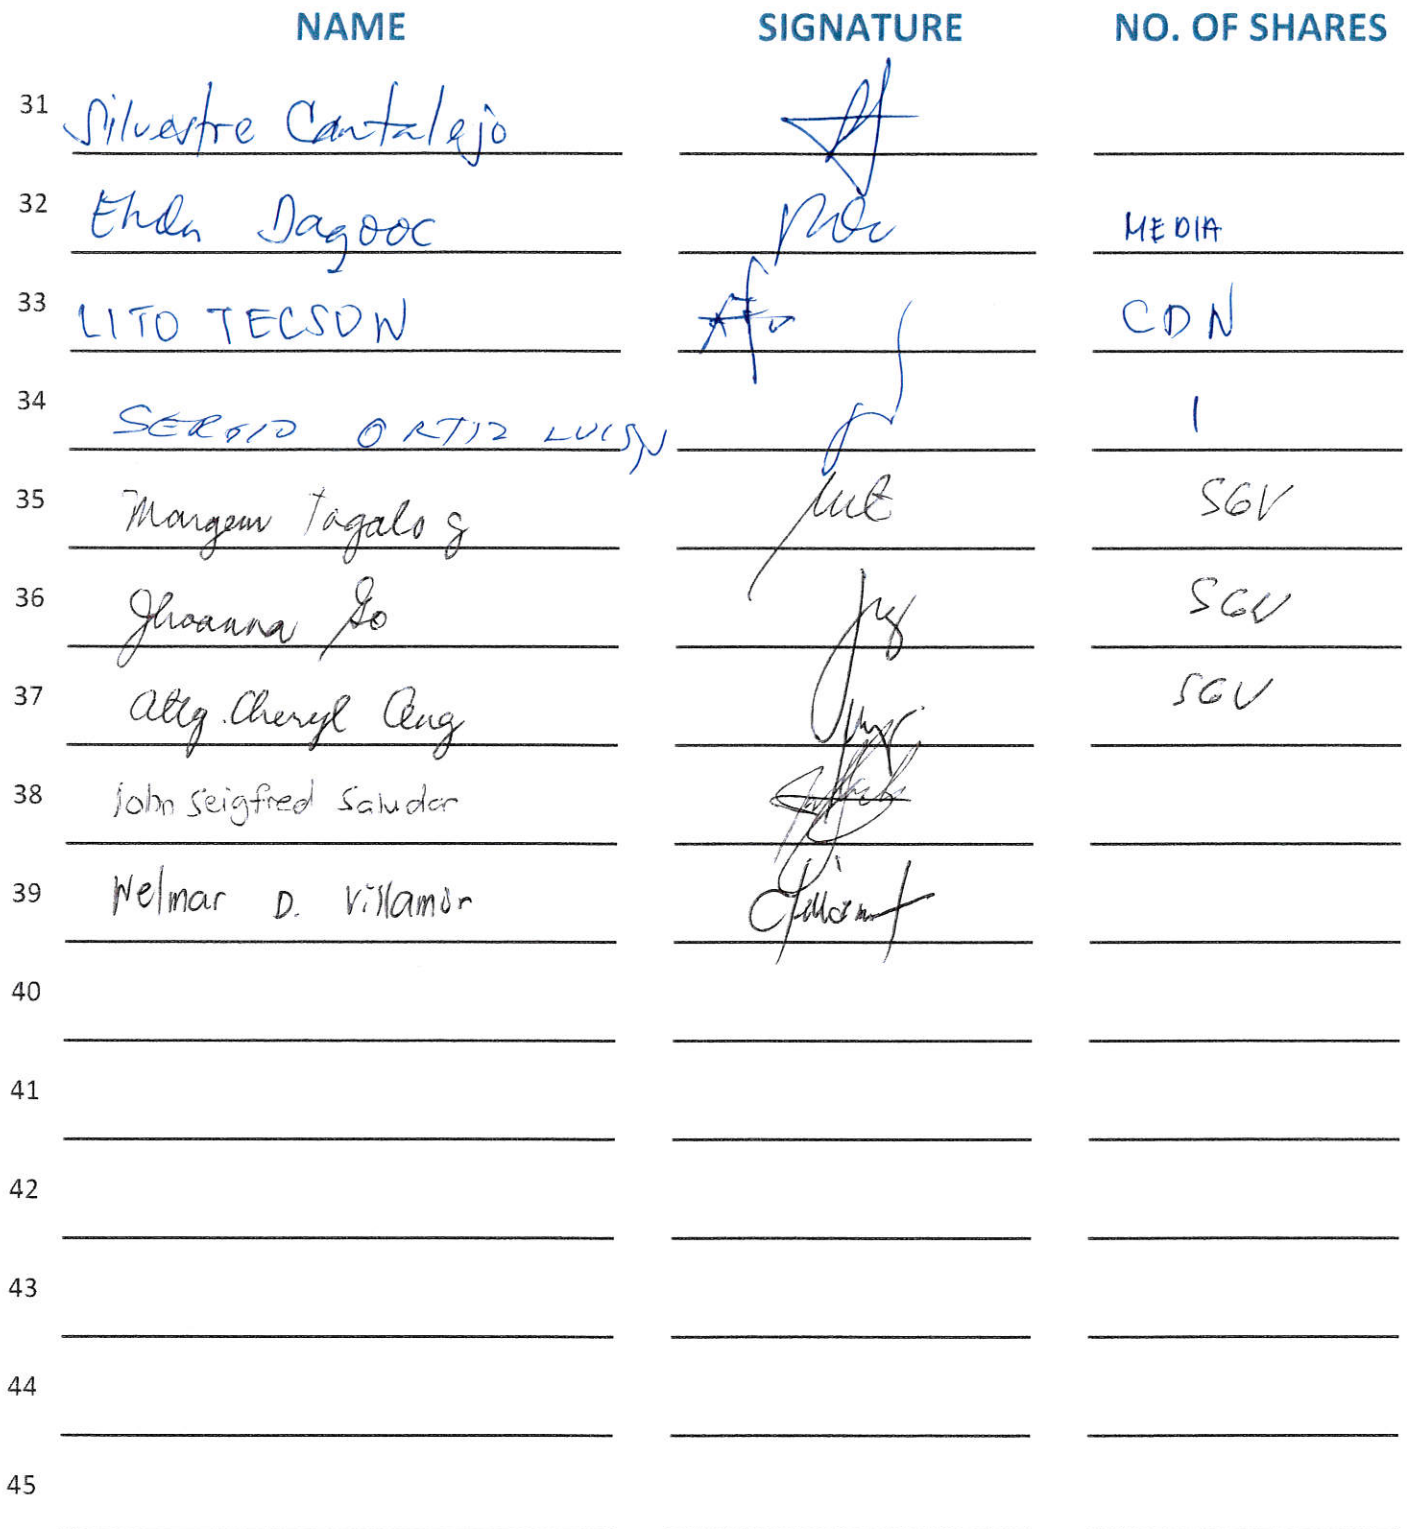 NAME SIGNATURE NO. OF SHARES
31 Silvestre Cantalejo
32 Ehda Dagooc MEDIA
33 LITO TECSON CDN
34 SERGIO ORTIZ LUIS 1
35 Margem Tagalog SGV
36 Jhoanna Go SGV
37 Atty. Cheryl Ang SGV
38 John Seigfred Saludar
39 Welmar D. Villamor
40
41
42
43
44
45